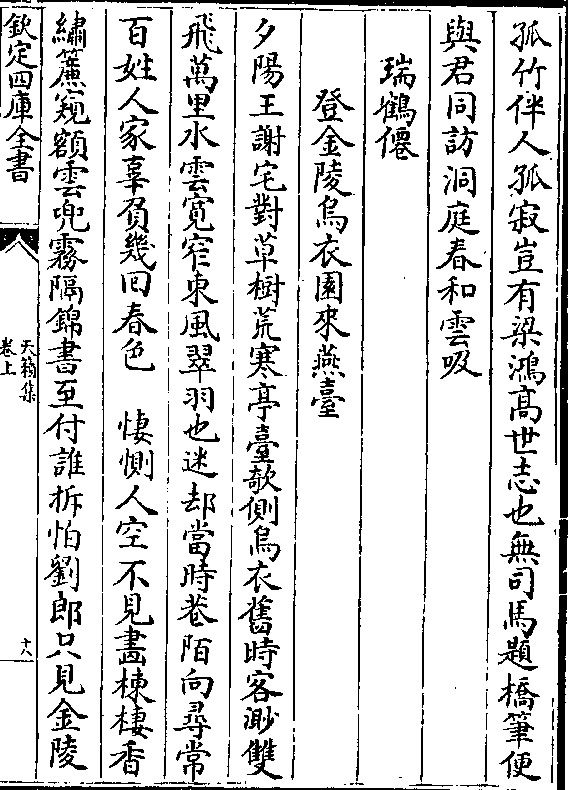 孤竹伴人孤寂豈有梁鴻髙世志也無司馬題橋筆便
與君同訪洞庭春和雲吸
瑞鶴僊
登金陵烏衣園來燕臺
夕陽王謝宅對草樹荒寒亭臺欹側烏衣舊時客渺雙
飛萬里水雲寛窄東風翠羽也迷却當時巷陌向尋常
百姓人家辜負幾回春色　悽惻人空不見畵棟棲香
繡簾窺額雲兜霧隔錦書至付誰拆怕劉郎只見金陵
欽定四庫全書
天籟集
卷上
十八